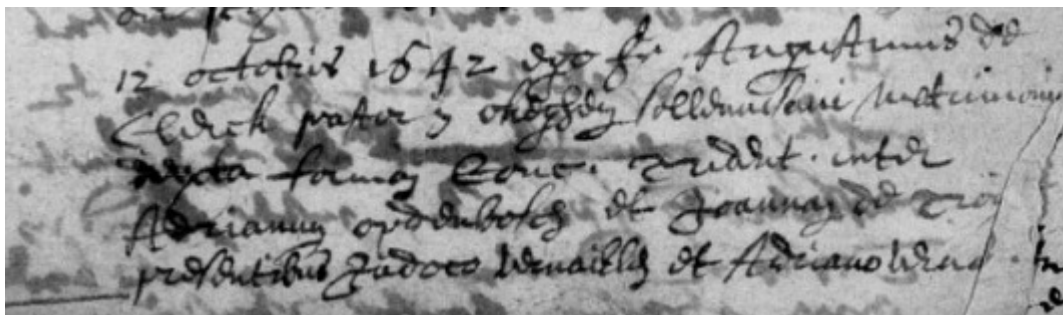 12 octobris 1642 ego fr Augustinus de
Clerck pastor solemnisavi matrimonium
juxta formam Conc. Trident. inter
Adrianum opdenbosch et Joannam de
presentibus Judoco et Adriano